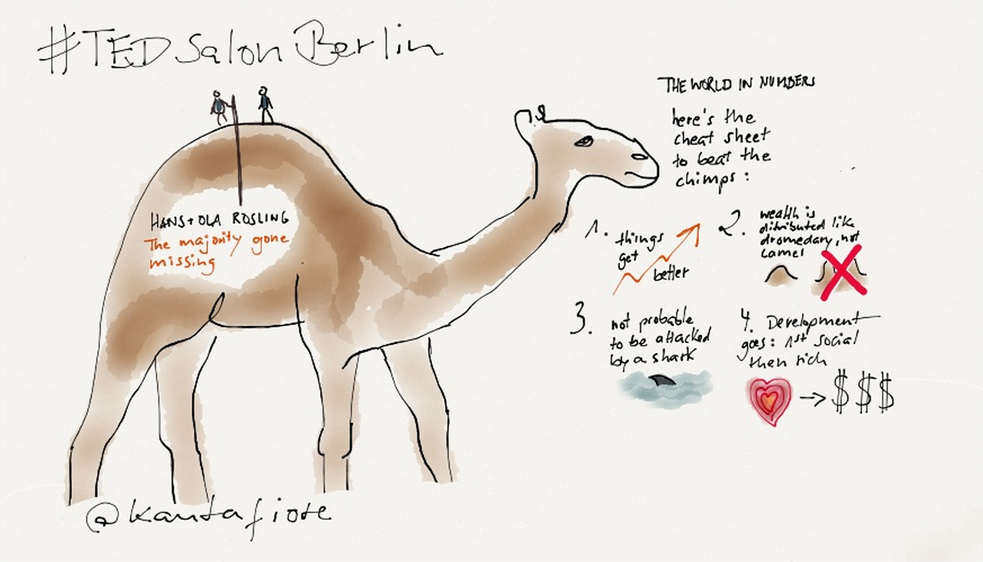 #TEDSalonBerlin
HANS + OLA ROSLING
The majority gone
missing
THE WORLD IN NUMBERS
here's the
cheat sheet
to beat the
chimps:
1. things
get
better
2. wealth is
distributed like
dromedary, not
camel
3. not probable
to be attacked
by a shark
4. Development
goes: 1st social
then rich
→ $ $ $
@kantafiore